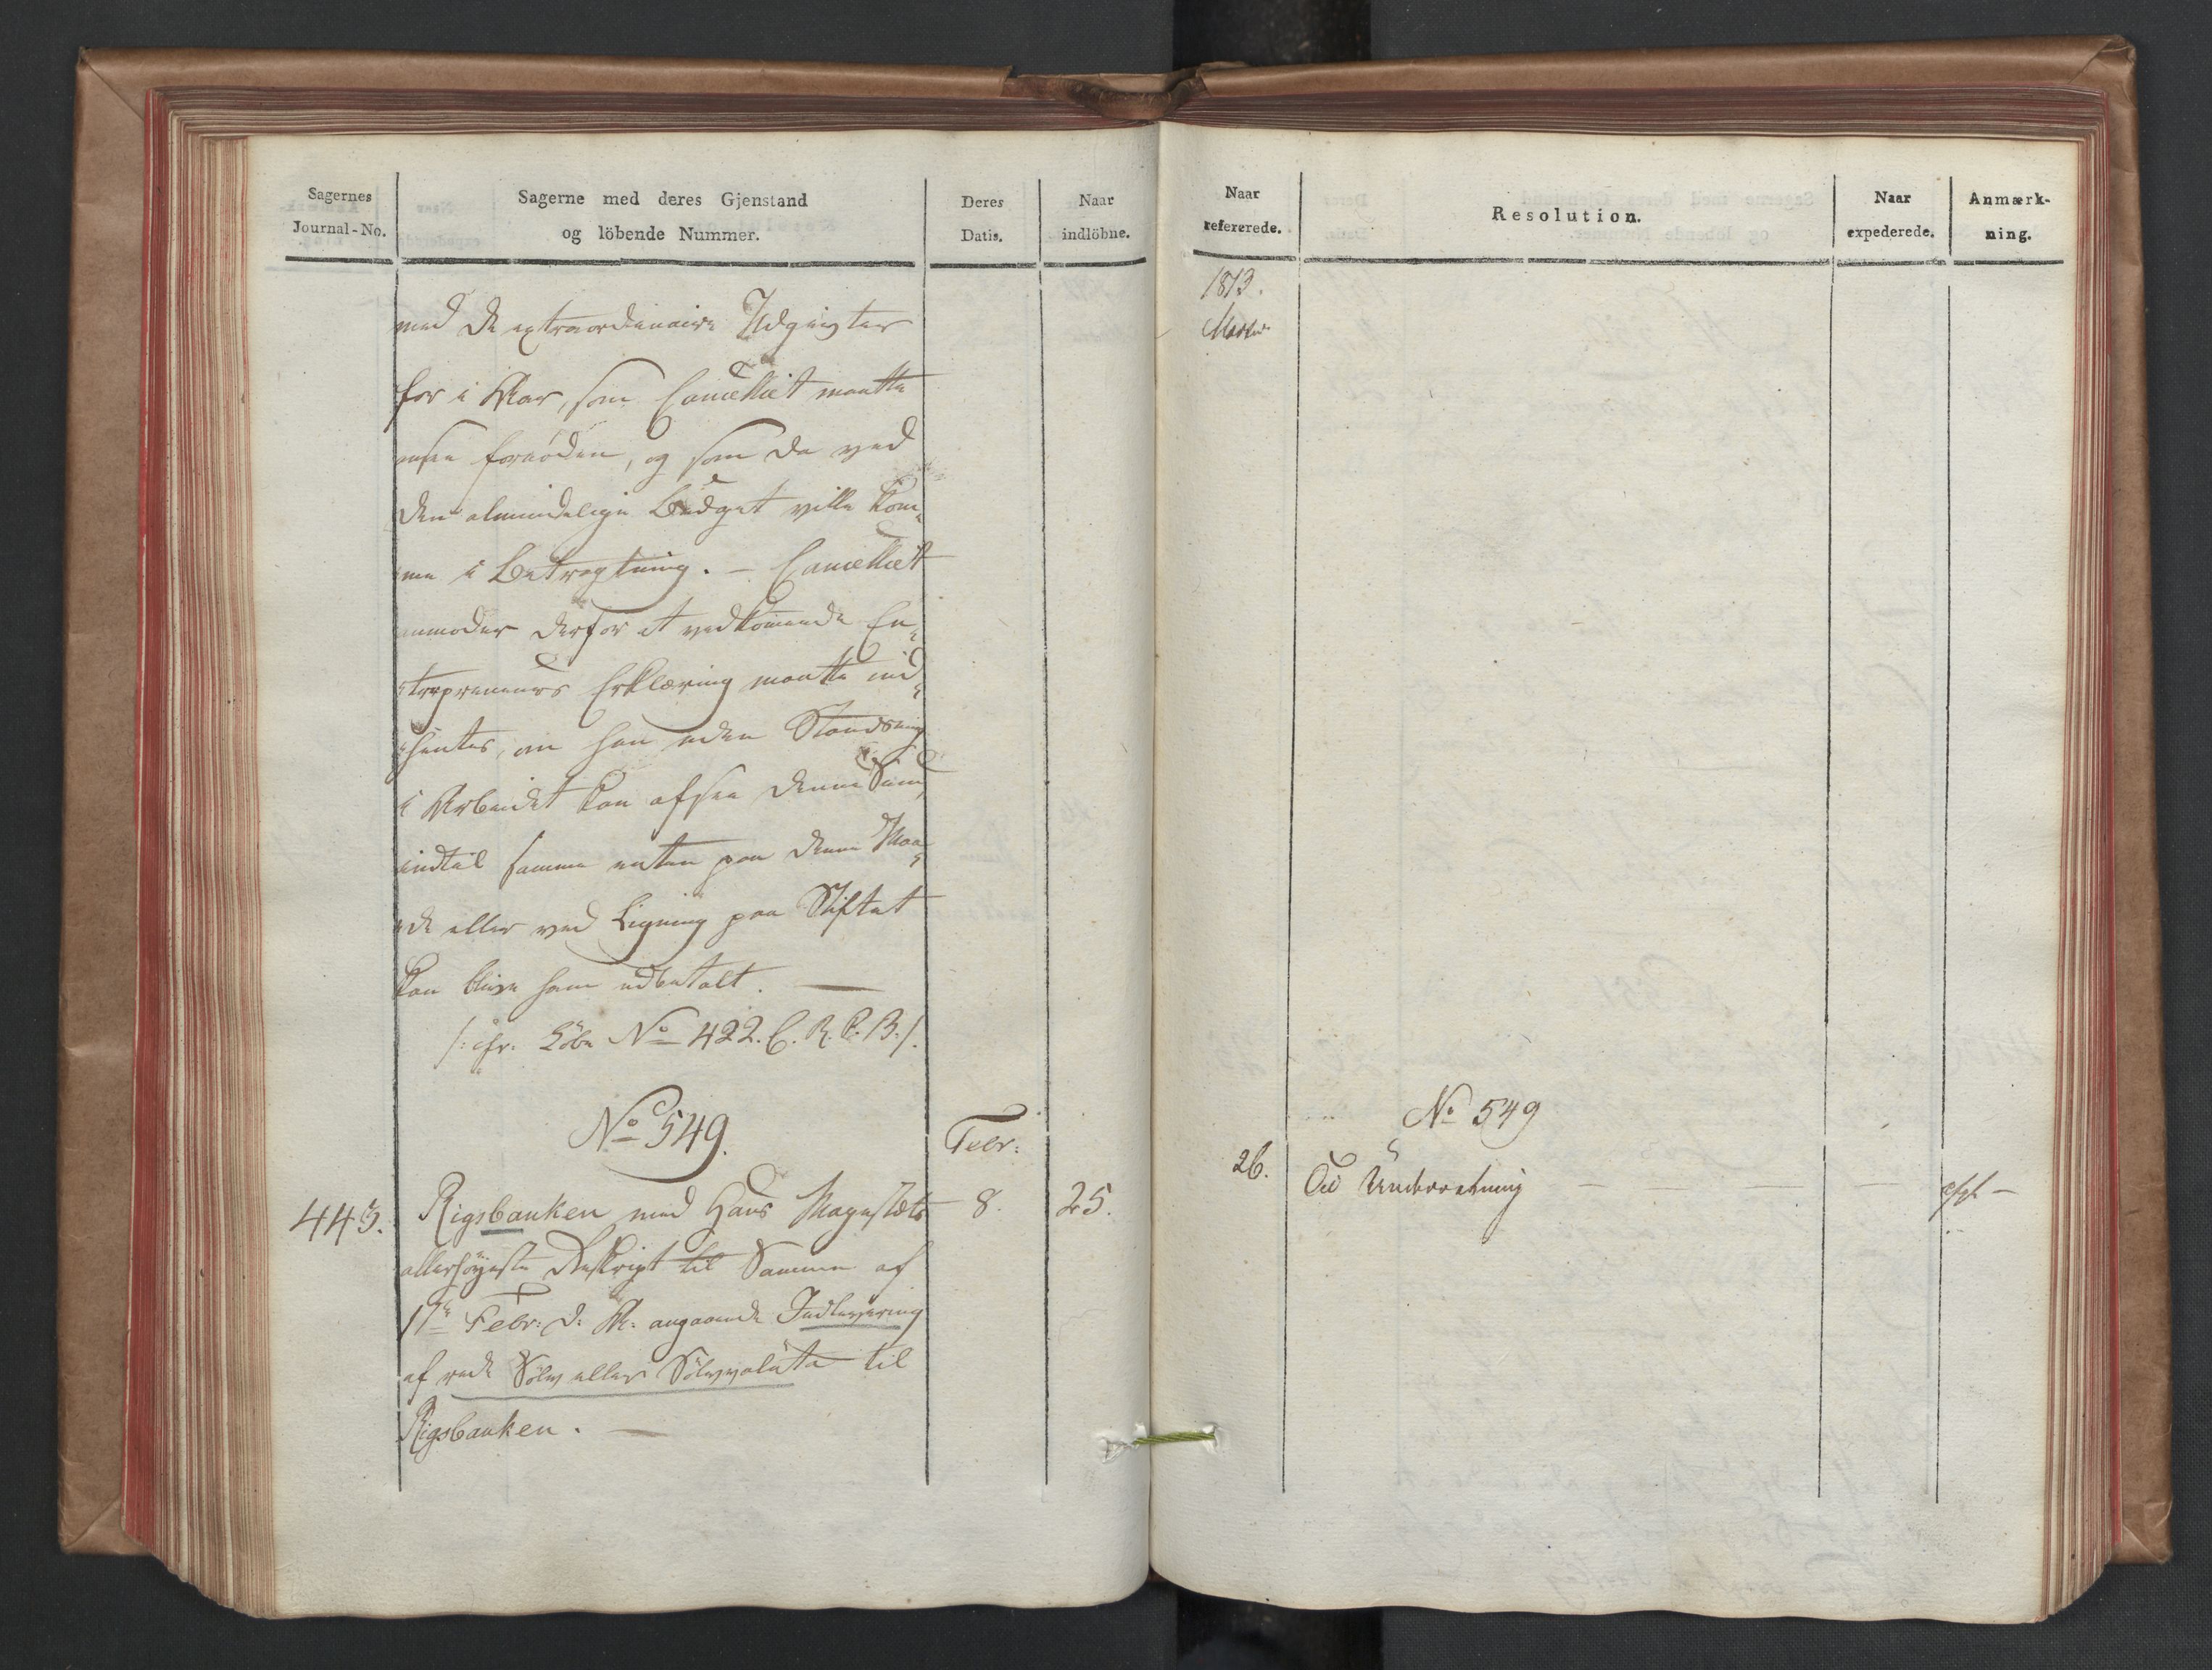 Sagernes
Journal-No.
Sagerne med deres Gjenstand
og löbende Nummer.
Deres
Datis.
Naar
indlöbne.
med de extraordinaire Udgivter
for i Aar, som Cancelliet maatte
ansee fornöden, og som da ved
den almindelige Budget ville kom-
me i Betragtning. – Cancelliet
anmoder derfor at vedkommende En-
trepreneurs Erklæring maatte ind-
hentes, om han uden Standsning
i Arbeidet kan afsee denne Sum,
indtil samme enten paa denne Maa-
de eller ved Ligning paa Stiftet
kan blive ham udbetalt. —
/: cfr. Löbe No 422. C. R. P. B:/.
No 549.
Febr:
443. Rigsbanken med Hans Majestæts 8. 25.
allerhöyeste Reskript til Samme af
17de Febr: d: A: angaaende Indlevering
af rede Sölv eller Sölvvaluta til
Rigsbanken. —
Naar
refererede.
Resolution.
Naar
expederede.
Anmærk-
ning.
1813.
Martii
No 549
26. Underretning — — — —